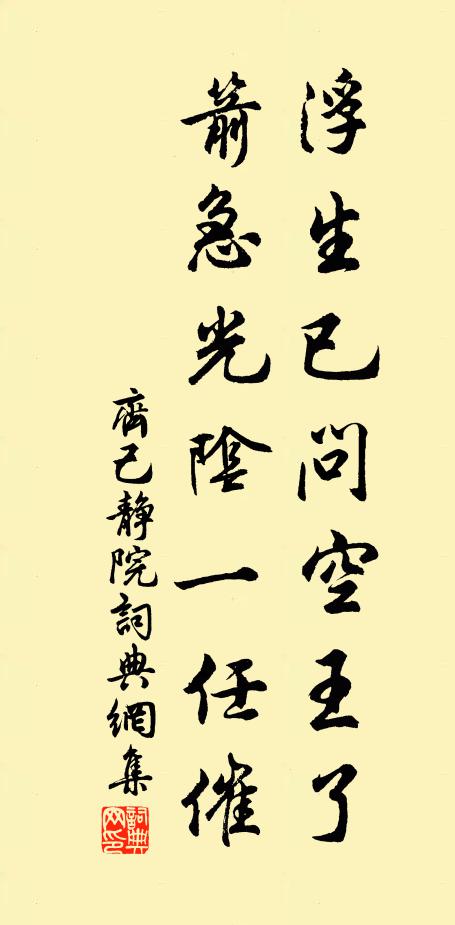 浮生已問空王了
箭急光陰一任催
齊己静院詞典網集
詞典網印